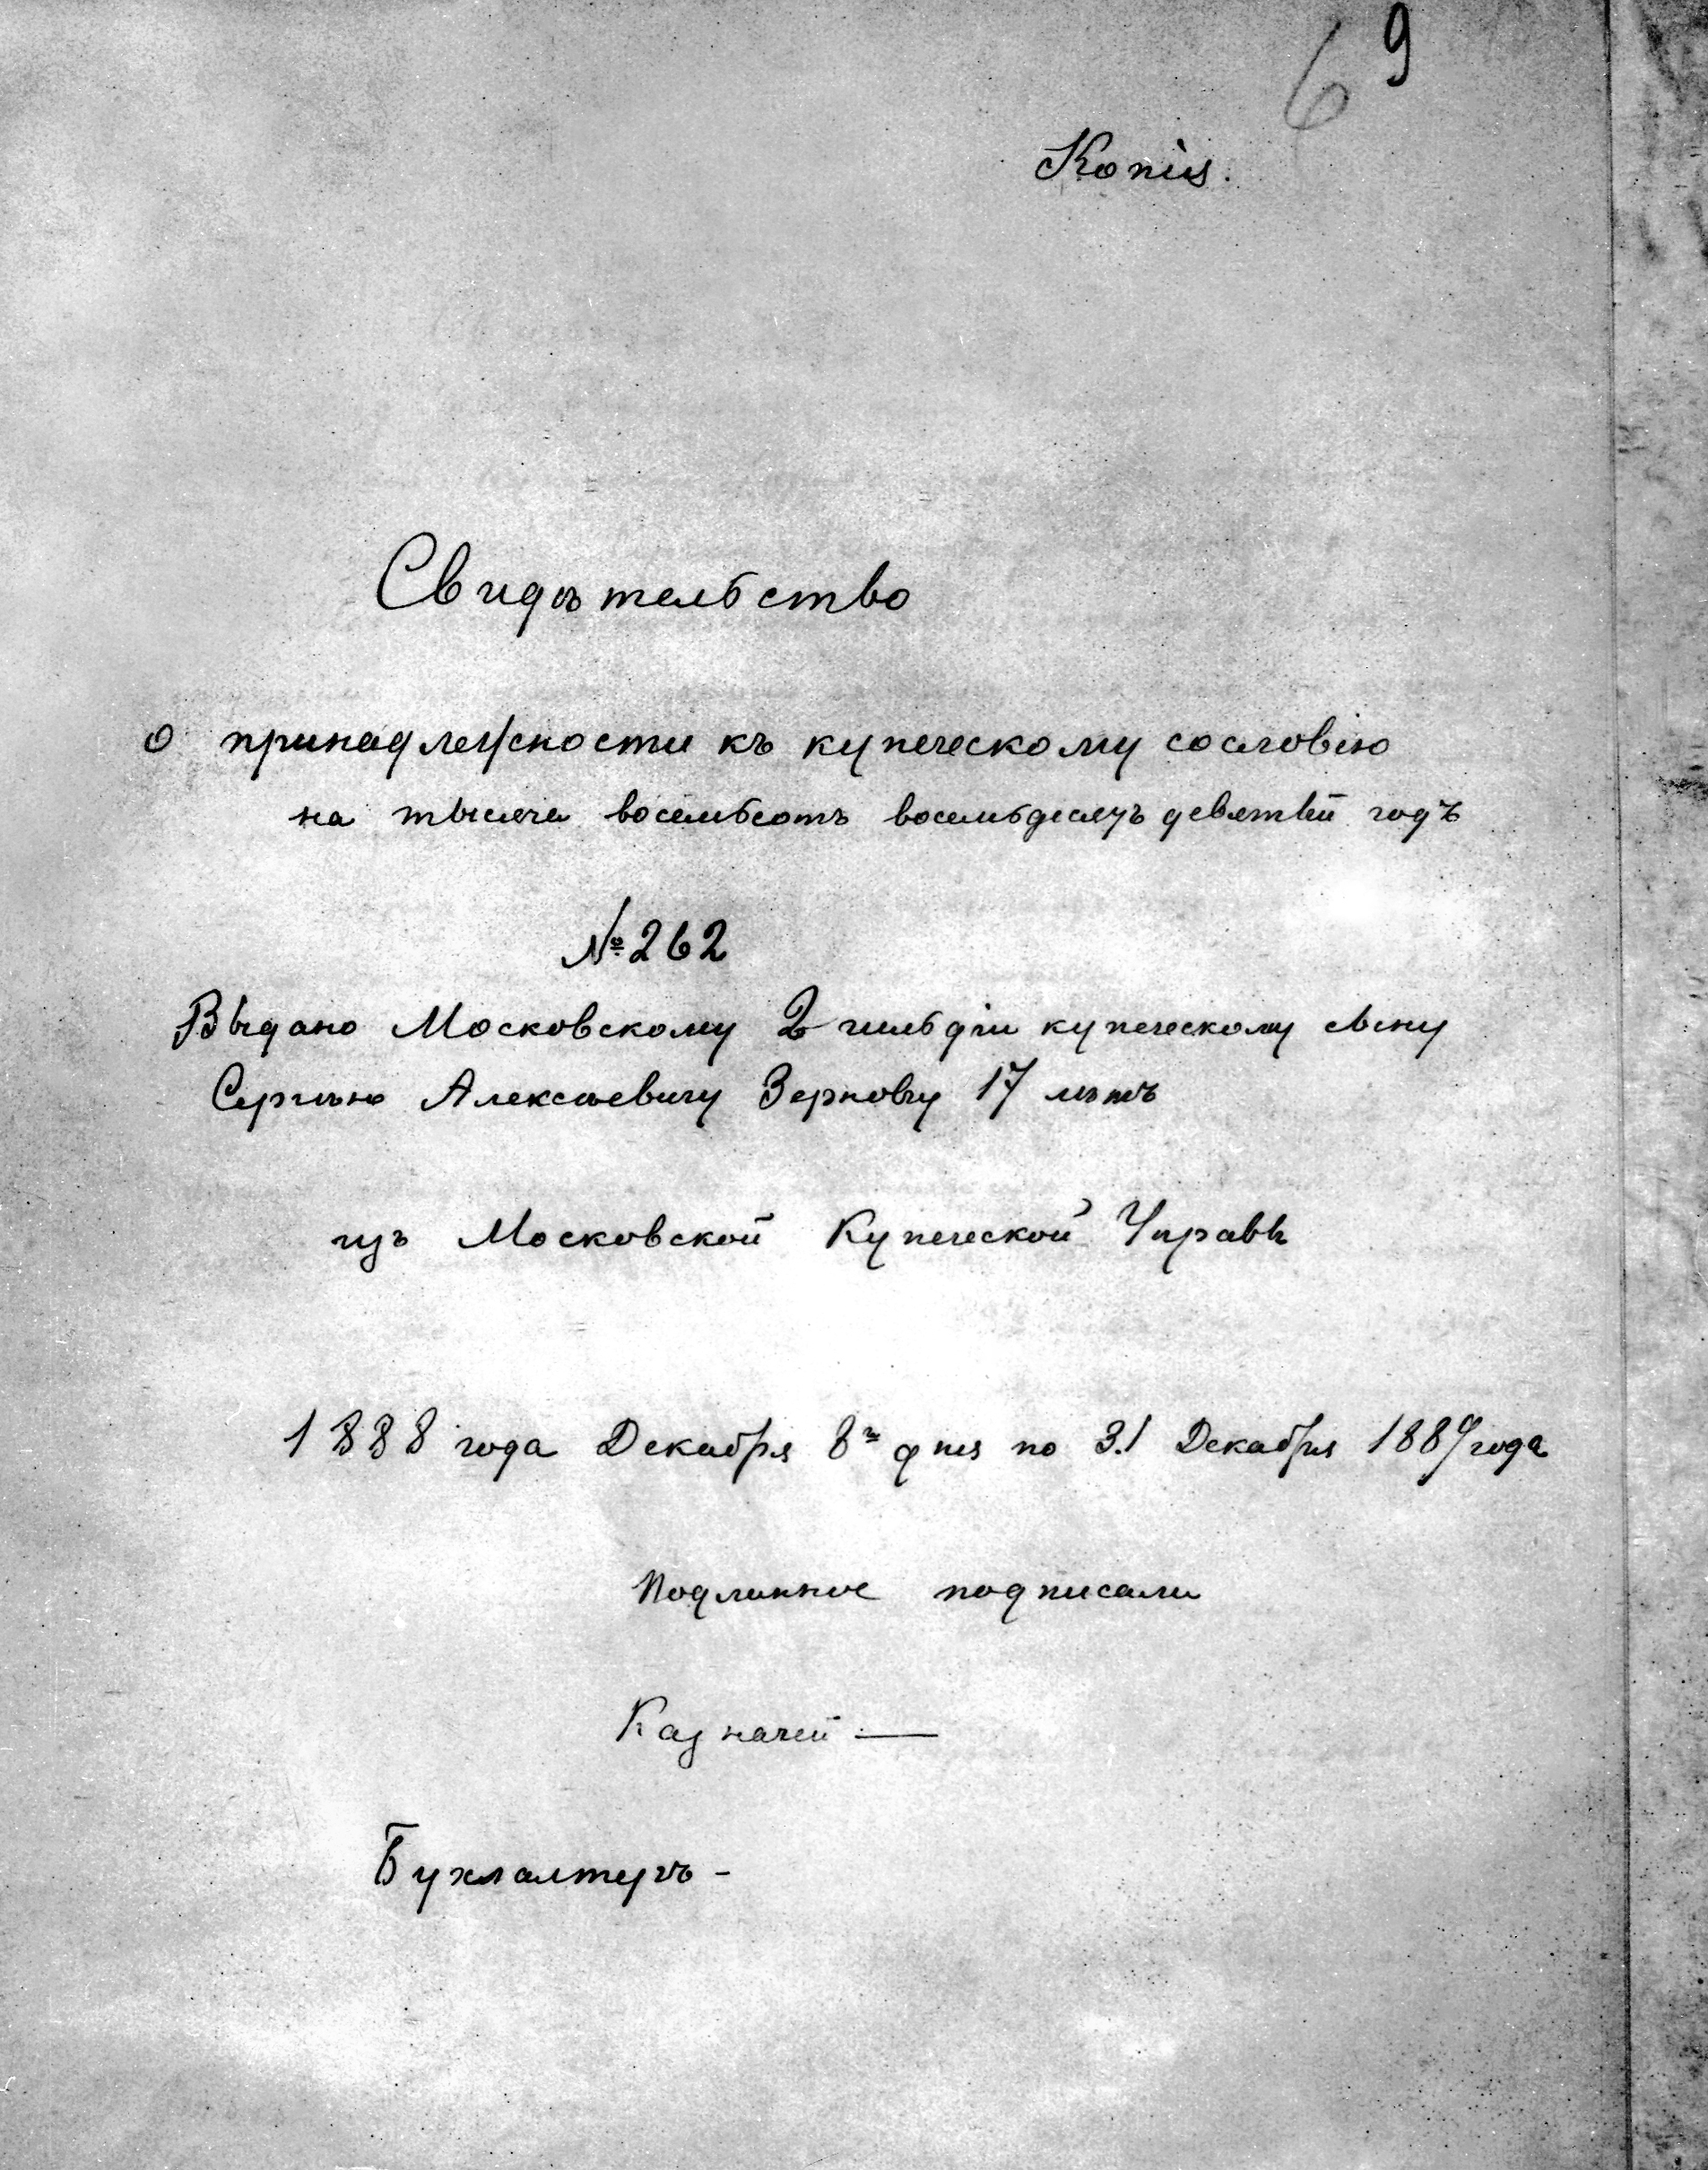 9
6
Копія.
Свидѣтельство
о принадлежности къ купеческому сословію
на тысяча восемьсотъ восемьдесятъ девятый годъ
№ 262
Выдано Московскому 2 гильдіи купеческому сыну
Сергѣю Алексѣевичу Зернову 17 лѣтъ
изъ Московской Купеческой Управы
1888 года Декабря 8го дня по 31 Декабря 1889 года
Подлинное подписали
Казначей —
Бухгалтеръ -